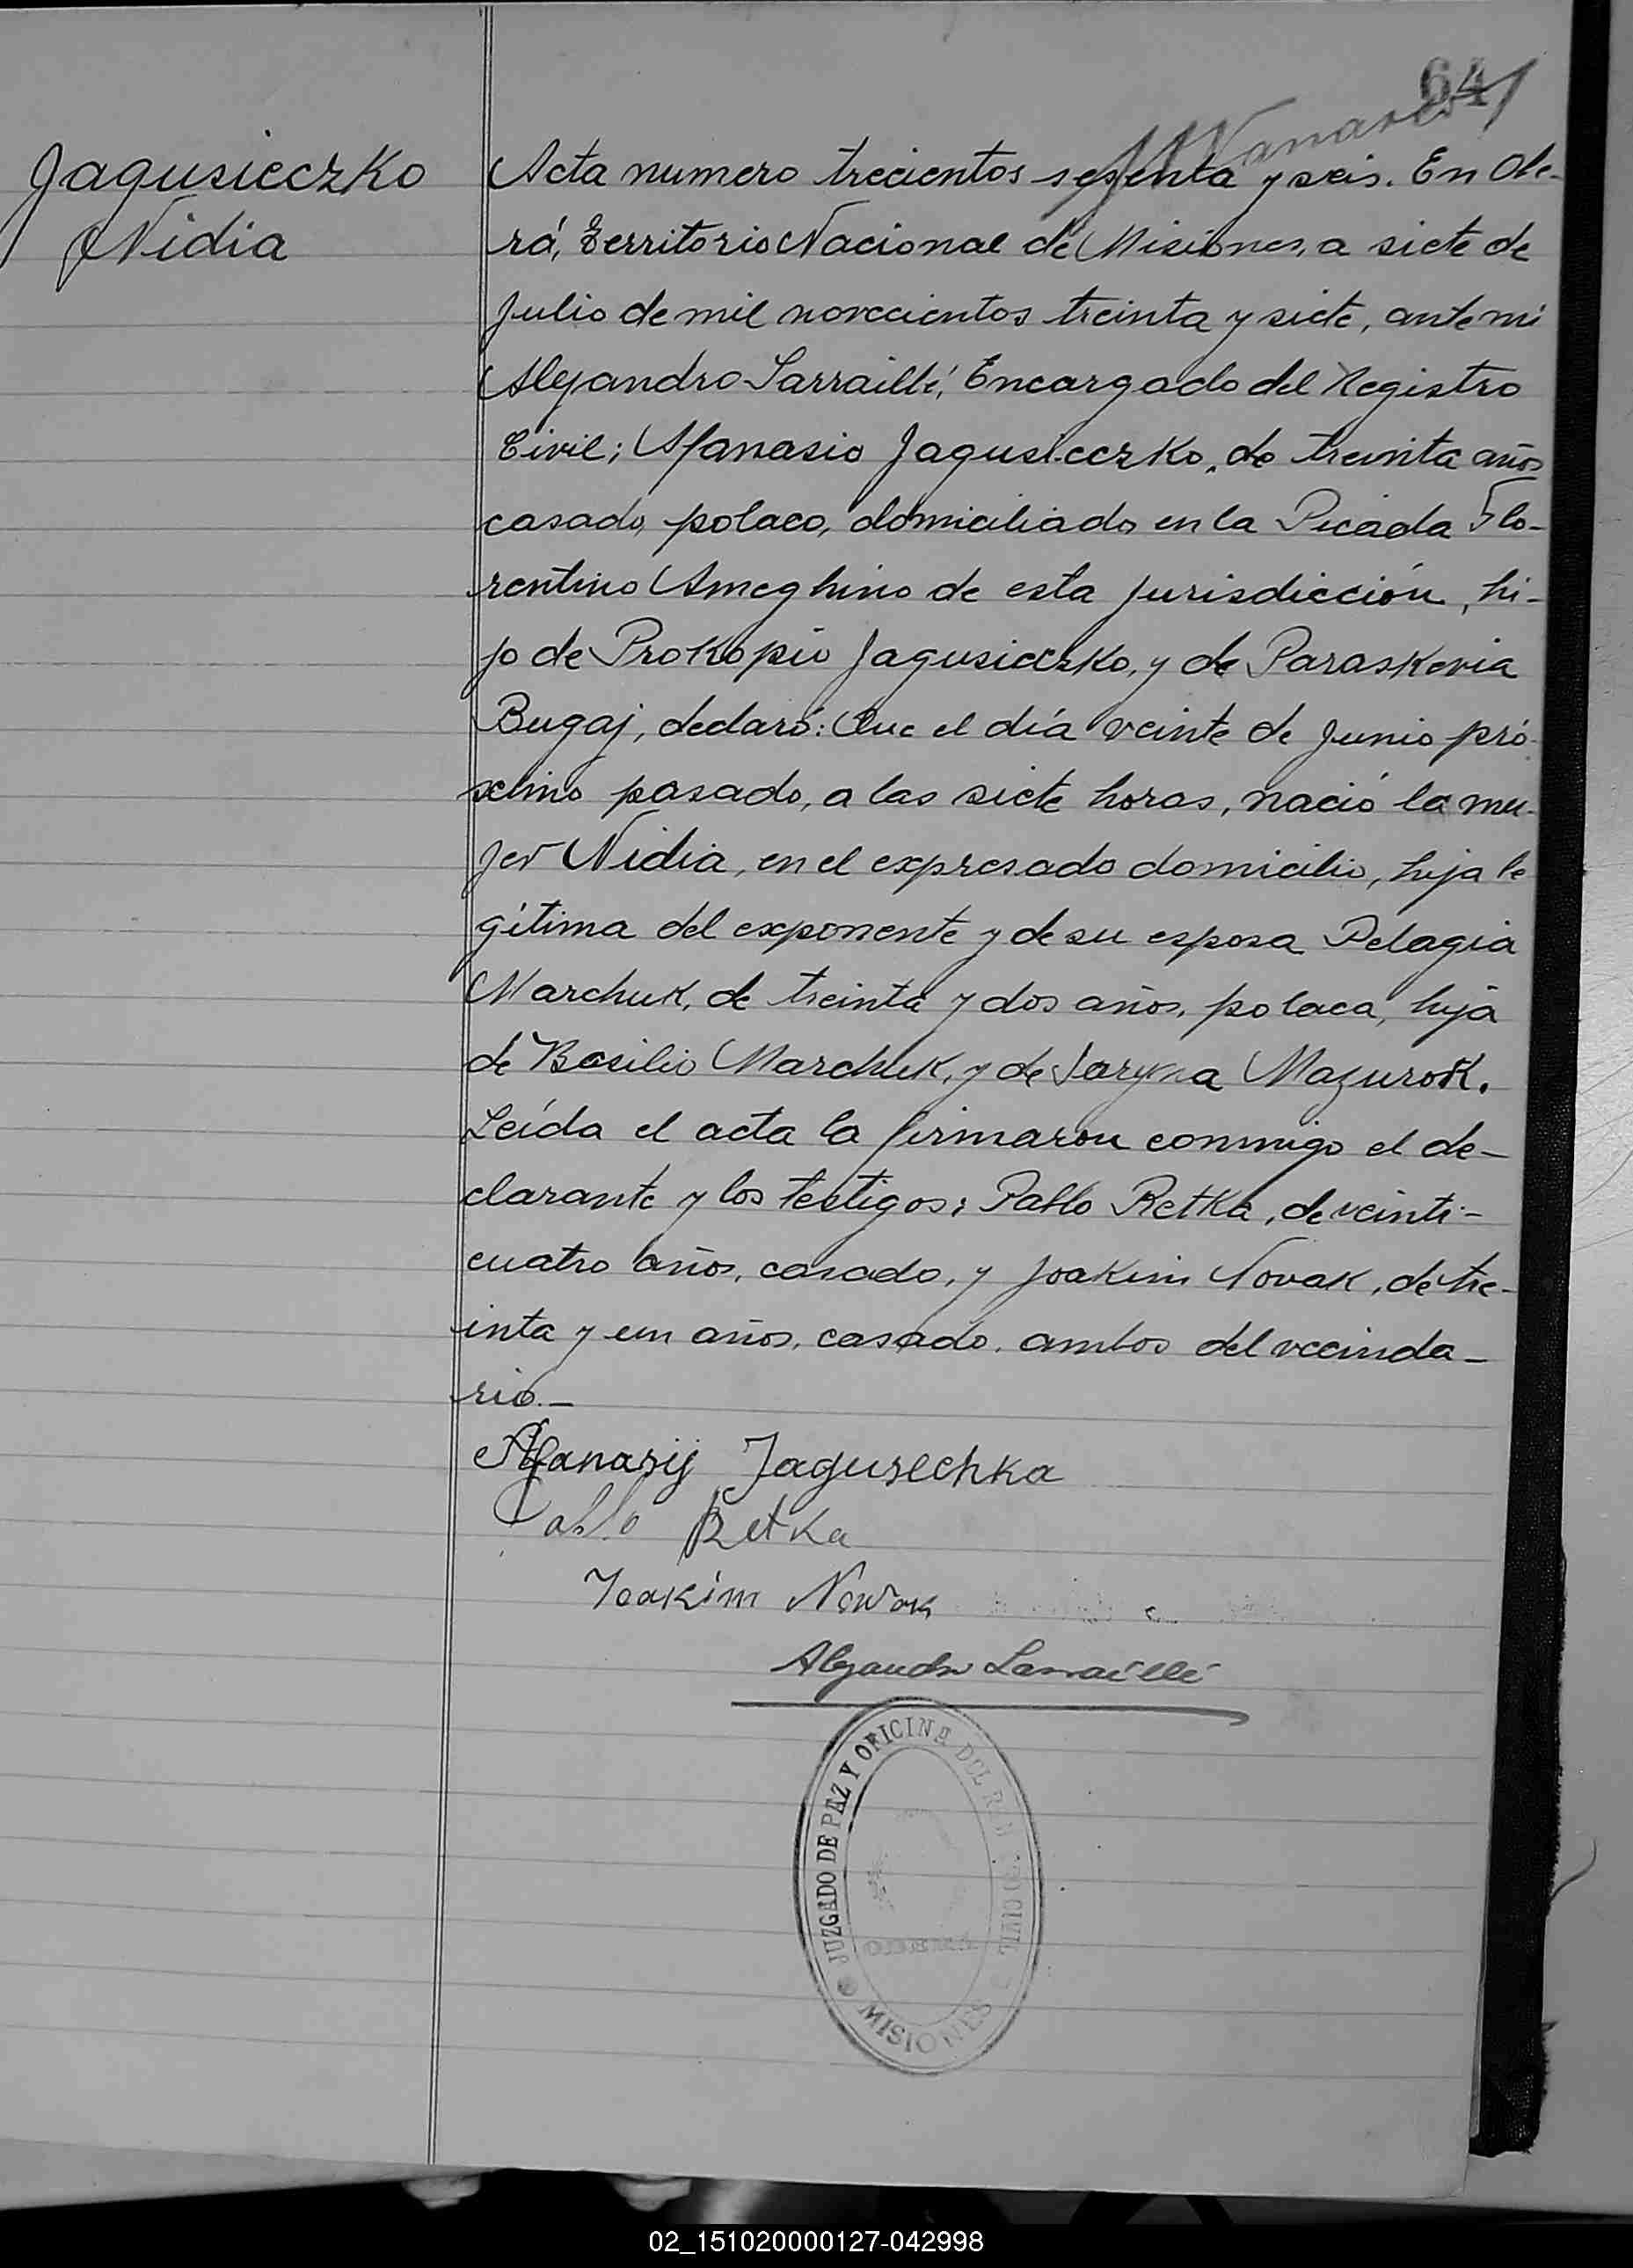 641
Jagusieczko
Nidia
Acta numero trecientos sesenta y seis. En Obe-
rá, Territorio Nacional de Misiones, a siete de
Julio de mil novecientos treinta y siete, ante mi
Alejandro Larraillé, Encargado del Registro
Civil; Afanasio Jagusieczko, de treinta años
casado, polaco, domiciliado en la Picada Flo-
rentino Ameghino de esta jurisdicción, hi-
jo de Prokopio Jagusieczko, y de Paraskevia
Bugaj, declaró: Que el día veinte de Junio pró-
ximo pasado, a las siete horas, nació la mu-
jer Nidia, en el expresado domicilio, hija le
gítima del exponente y de su esposa Pelagia
Marchuk, de treinta y dos años, polaca, hija
de Basilio Marchuk, y de Jaryna Mazurok.
Leída el acta la firmaron conmigo el de-
clarante y los testigos: Pablo Retka, de veinti-
cuatro años, casado, y Joakim Novak, de tre-
inta y un años, casado, ambos del vecinda-
rio.-
Afanasij Jagusechka
Pablo Retka
Joakim Nowak
Alejandro Larraillé
JUZGADO DE PAZ Y OFICINA DEL REGISTRO CIVIL
MISIONES
02_151020000127-042998